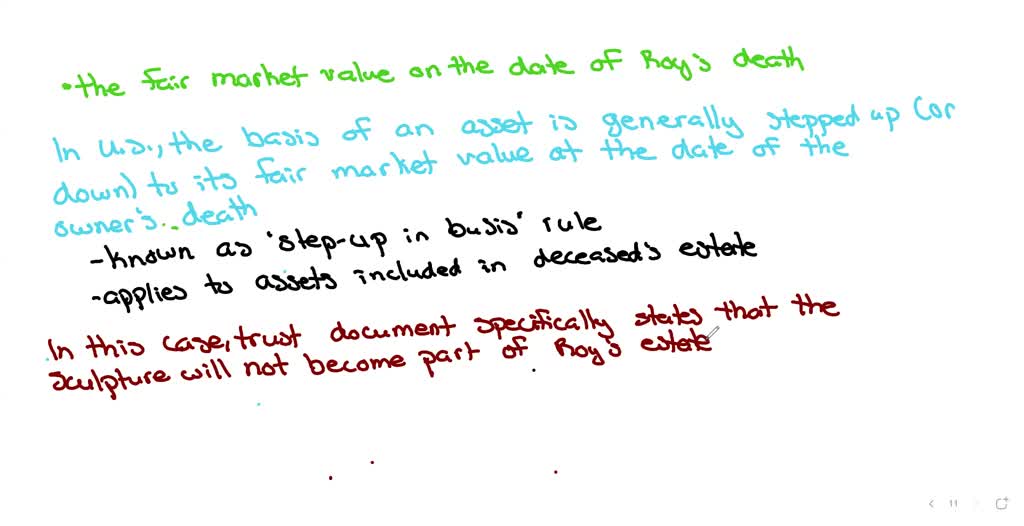 • the fair market value on the date of Roy's death
In U.S., the basis of an asset is generally stepped up (or
down) to its fair market value at the date of the
owner's death
- known as 'step-up in basis' rule
- applies to assets included in deceased's estate
In this case, trust document specifically states that the
sculpture will not become part of Roy's estate